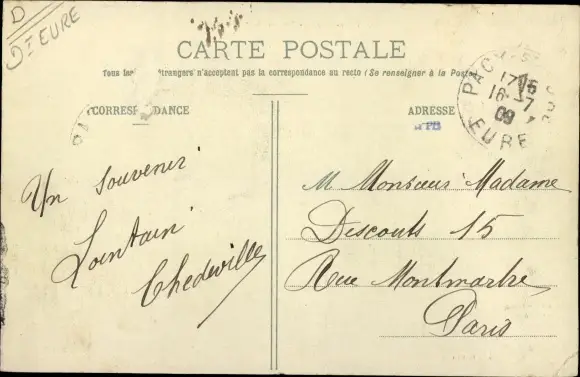 D
Dᵗ EURE
CARTE POSTALE
Tous les étrangers n'acceptent pas la correspondance au recto (Se renseigner à la Poste)
CORRESPONDANCE
ADRESSE
PACY-S
EURE
17 15
16 -7
09
Un souvenir
Lointain
Chedeville
M Monsieur Madame
Descouts 15
Rue Montmartre
Paris